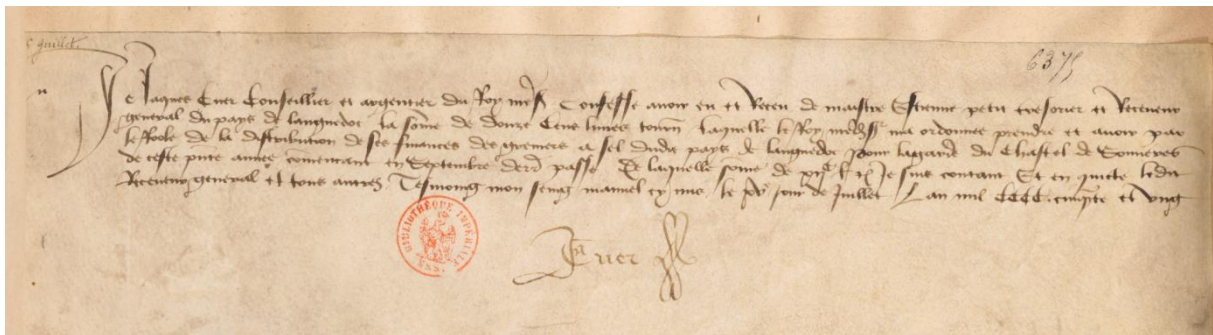 c quillet.
6375
Je Jaques Cuer Conseiller et argentier du Roy nr̃e sr̃ Confesse avoir eu et Receu de maistre Estienne petit tresorier et Receveur
general du pays de languedoc la some de douze Cens livres tourn̄ laquelle le Roy nr̃edss̃r ma ordonnee prendre et avoir par
le Roole de la distribution de ses finances des greniers a sel dudit pays de languedoc pour la garde du Chastel de Sommieres
de ceste pñte annee comencant en Septembre derr̃ passe De laquelle some de xijc l t Je suis content Et en quicte ledit
Receveur general et tous autres Tesmoing mon seing manuel cy mis le jour de Juillet Lan mil CCCC. cinqũte et ung
BIBLIOTHÈQUE IMPÉRIALE
Cuer